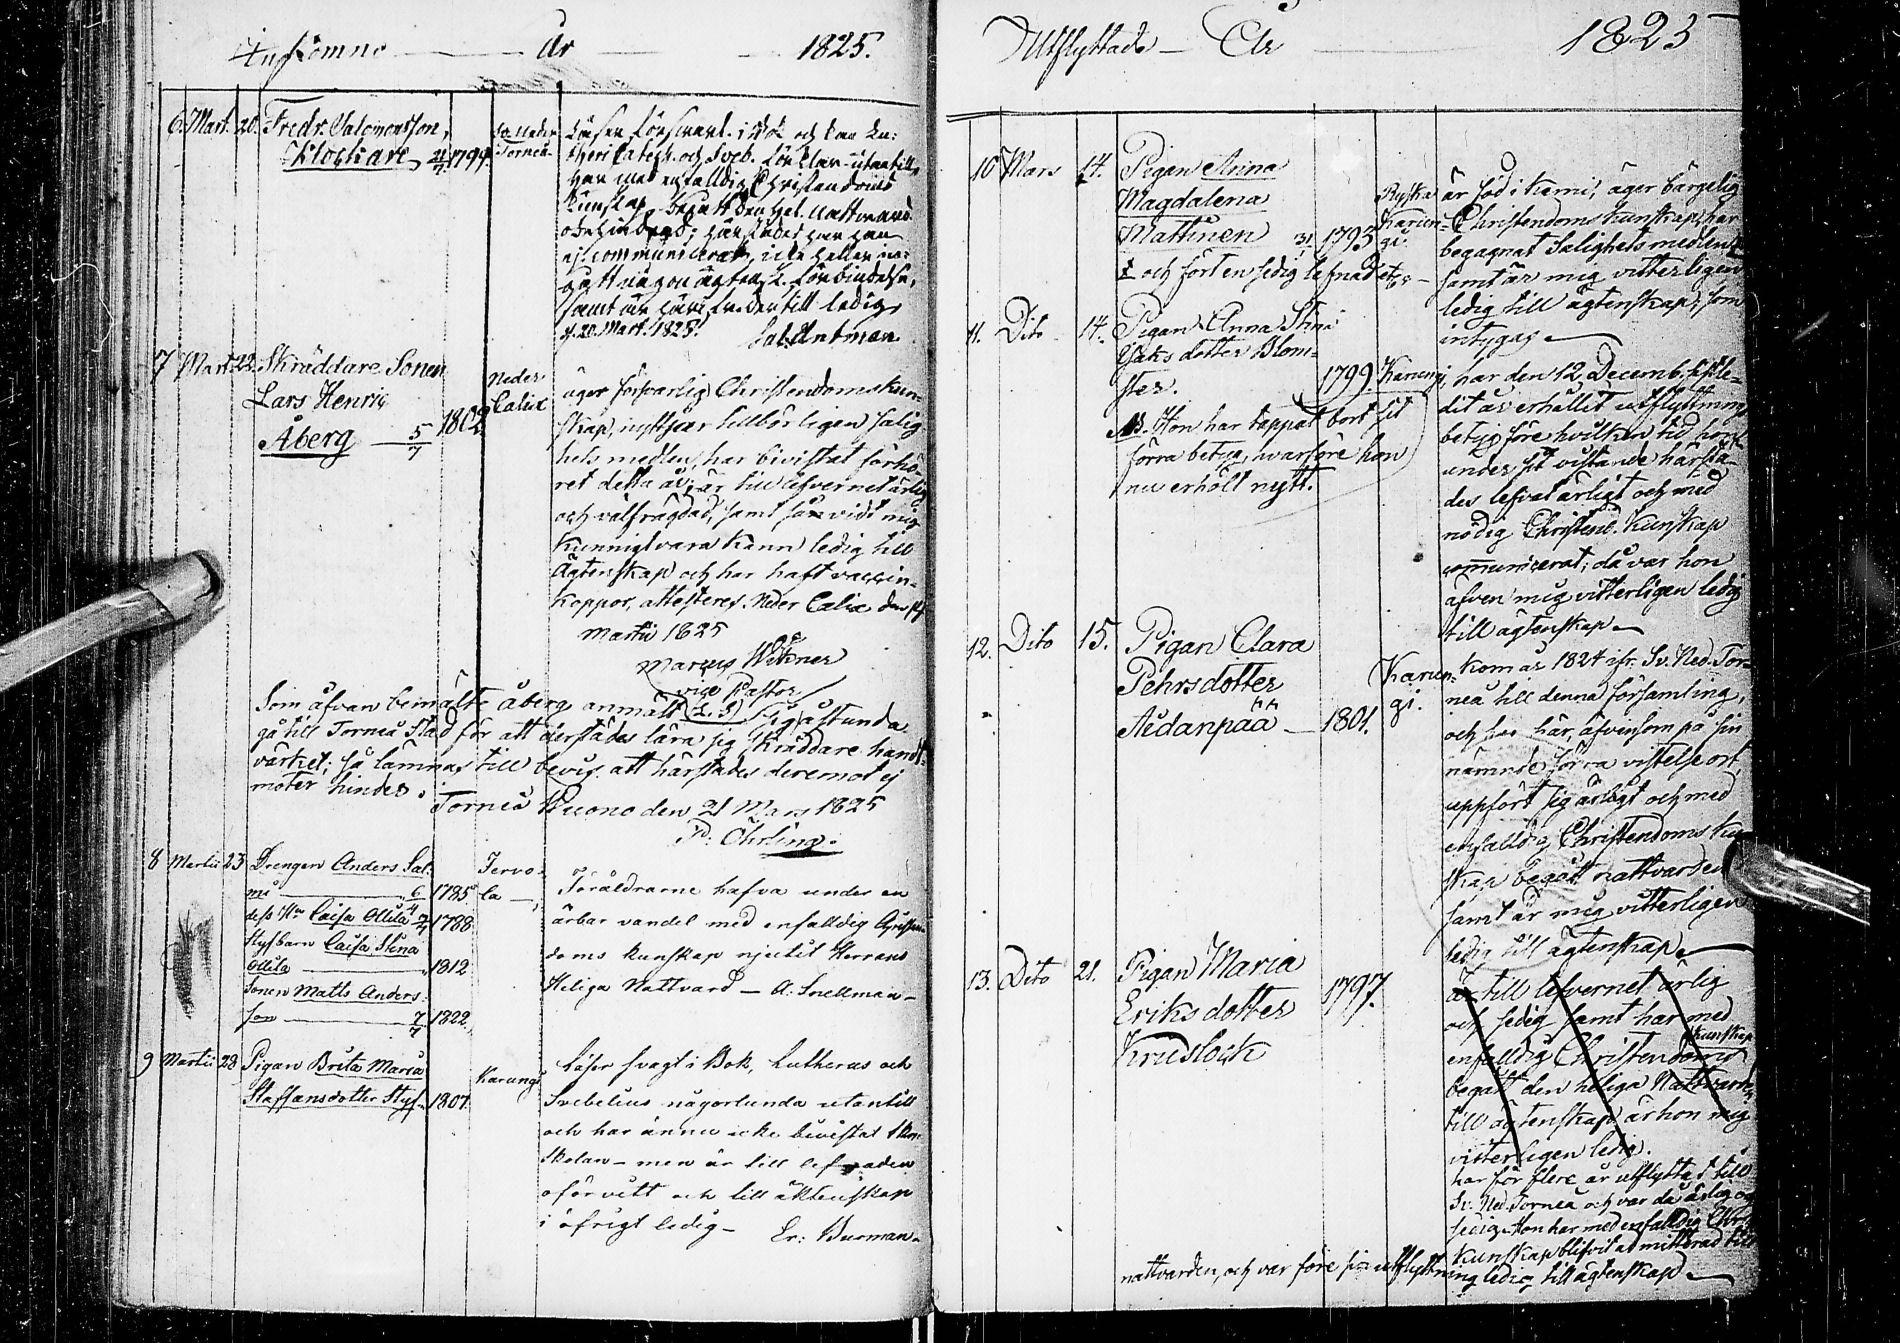 Inkomne År 1825.
6. Mart. 20. Fredr. Salomonsson,
Klockare 1799.
Sv. Neder
Torneå
Läser försvarl. i Bok och kan Lu-
theri Catech. och Sveb. förklar. utantill,
har med enfalldig Christendoms
kunskap begått den Hel. Nattvard
ej communicerat, icke heller in-
gått någon ägtensk. förbindelse,
d. 20 Mart. 1825.
7 Mart. 22. Skräddare Sonen
Lars Henric
Åberg 5/7 1802
Neder
Calix
äger försvarlig Christendomskun-
skap, nyttjar tillbörligen salig-
hets medlen, har bivistat förhö-
ret detta år, är till lefvernet ärlig
och välfrägdad, samt så vidt mig
kunnigt vara kann ledig till
Ägtenskap och har haft vaccin-
koppor, attesteres. Neder Calix den
Martii 1825
Marcus Wikner
vice Pastor
(L.S)
Som äfvan bemälte Åberg anmält sig åstunda
gå till Torneå Stad för att derstädes lära sig skräddare handt-
värket; så lämnas till bevis att härstädes deremot ej
möter hinder.
Torneå den 21 Mars 1825
P: Öhrling.
8 Martii 23 Drengen Anders Sal-
mi 6/4 1785
dess H:u Caisa Ollila 1788
Styfbarn Caisa Stina
Ollila 1812
Sonen Matts Anders-
son 7/7 1822
Tervo-
la
Föräldrarne hafva under en
ärbar vandel med enfalldig Christen-
doms kunskap njutit Herrans
Heliga Nattvard — A: Snellman —
9 Martii 28 Pigan Brita Maria
Staffansdotter Styf 1807
Karungi
Läser svagt i Bok, Lutherus och
Svebelius någorlunda utantill
och har ännu icke bevistat Skrift-
Skolan — men är till lefnaden
oförvitt och till äktenskap
i öfrigt ledig —
Er: Burman.
Utflyttade — År 1825
10 Mars 14. Pigan Anna
Magdalena
Mattinen 1793
Ryska
Karun-
gi.
är född i Kemi, äger bärgelig
Christendoms kunskap, har
begagnat Salighetsmedlen
och fört en sedig lefnad
samt är mig vitterligen
ledig till ägtenskap, som
intygas —
11. Dito 14. Pigan Anna Stina
Isaksdotter Blom-
ster. 1799 Karungi
NB. Hon har tappat bort sit
förra betyg, hvarföre hon
nu erhölt nytt.
har den 12 Decemb. sistle-
dit år erhållit utflyttnings
betyg före hvilken tid hon
under sit vistande härstä-
des lefvat ärligt och med
nödig Christend. kunskap
communicerat; då var hon
äfven mig vitterligen ledig
till ägtenskap —
12. Dito 15. Pigan Clara
Pehrsdotter
Aidanpää — 1801.
Karun-
gi.
Kom år 1824 ifr. Sv. Ned. Tor-
neå till denna församling,
och har här, äfvensom på sin
nämnde förra vistelse ort,
uppfört sig ärligt och med
enfalldig Christendoms kun-
skap begått nattvarden
samt är mig vitterligen
ledig till ägtenskap —
13. Dito 21. Pigan Maria
Eriksdotter
1797
är till lefvernet ärlig
och sedig samt har med
enfalldig Christendoms kunskap
begått den heliga Nattvard,
till ägtenskap är hon mig
vitterligen ledig.
har för flere år utflyttat till
Sv. Ned. Torneå och var då ärlig och
sedig. Hon har med enfalldig Chr.
kunskap blifvit admitterad till
nattvarden, och var före sin utflyttning ledig till ägtenskap —